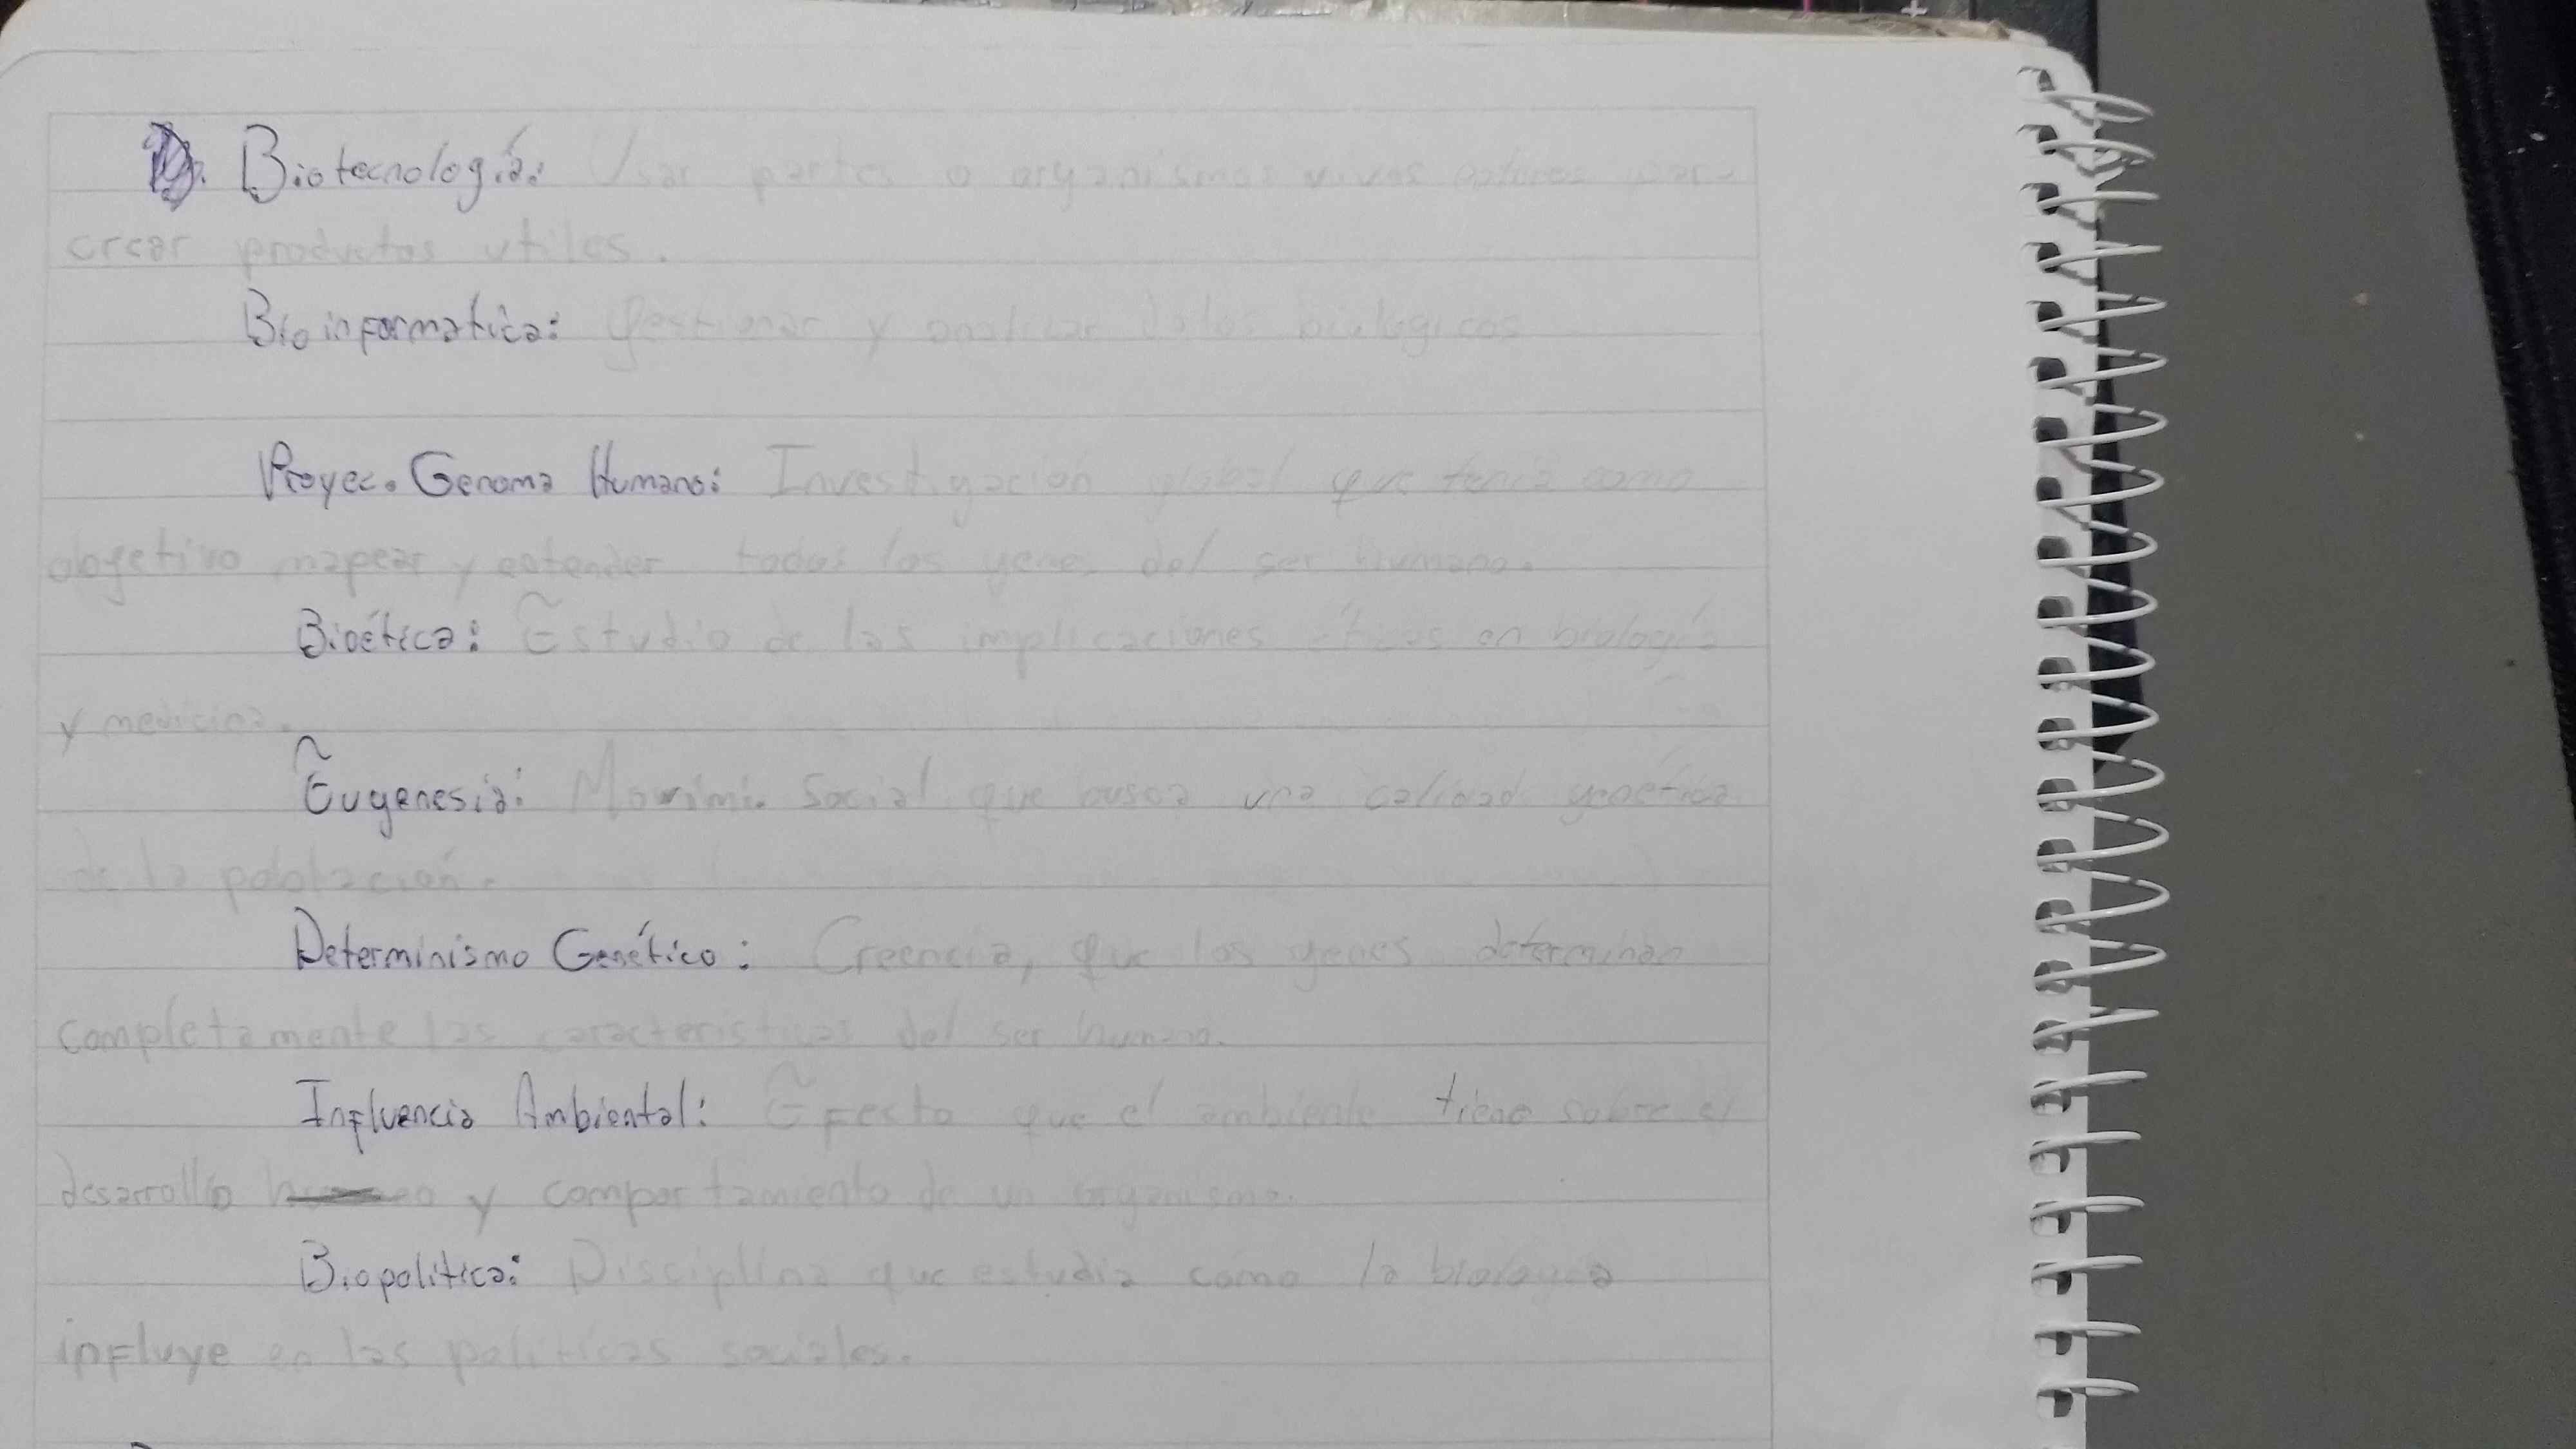 Biotecnología: Usar partes o organismos vivos para
crear productos utiles.
Bioinformatica: Gestionar y analizar datos biologicos
Proyec. Genoma Humano: Investigación global que tenia como
objetivo mapear y entender todos los genes del ser humano.
Bioética: Estudio de las implicaciones éticas en biología
y medicina.
Eugenesia: Movimi. Social que busca una calidad genética
de la población.
Determinismo Genético: Creencia, que los genes determinan
completamente las caracteristicas del ser humano.
Influencia Ambiental: Efecto que el ambiente tiene sobre el
desarrollo y comportamiento de un organismo.
Biopolitica: Disciplina que estudia como la biologia
influye en las politicas sociales.